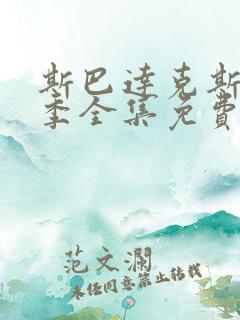 斯巴达克斯
季全集免費
范文瀾
未经同意禁止转载